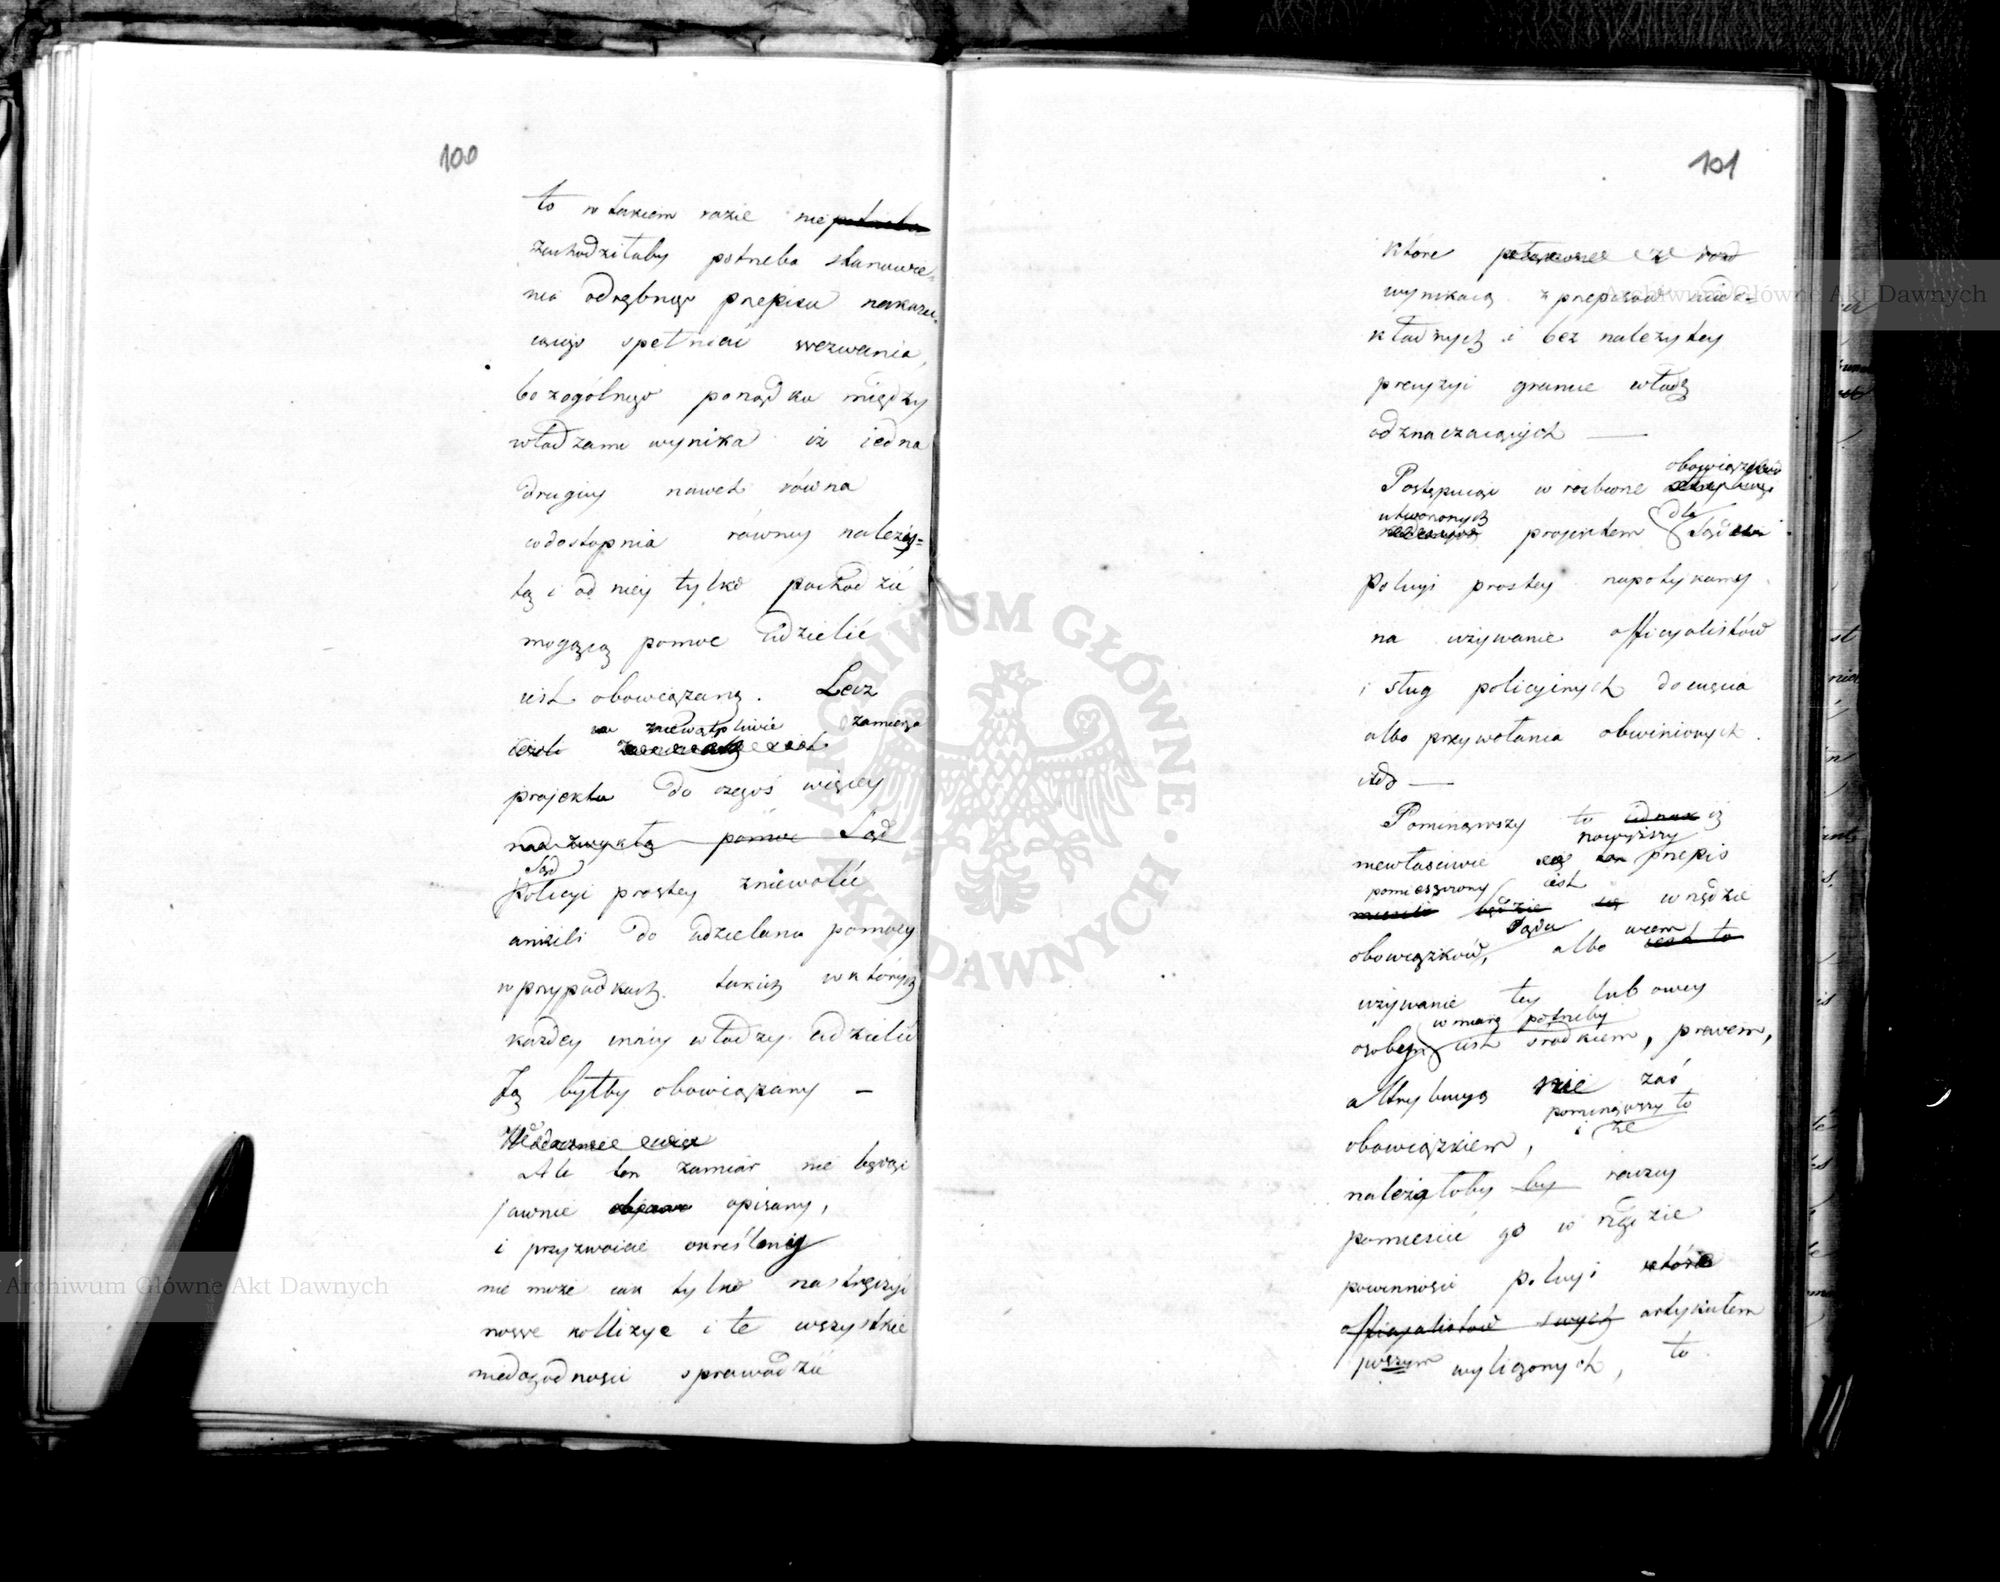 100
to w takiem razie nie potrzeba
zachodziłaby potrzeba stanowie-
nia odrębnego przepisu nakazu-
iącego spełniać wezwania,
bo z ogólnego porządku między
władzami wynika iż iedna
drugiey nawet równa
co do stopnia równey należy-
tą i od niey tylko pochodzić
mogącą pomoc udzielić
iest obowiązaną. Lecz
niewątpliwie zamierza
projektu do czegoś więcey
nad zwykłą pomoc Sąd
Sąd
Policyi prostey zniewolić
aniżeli do udzielania pomocy
w przypadkach takich w których
każdey inney władzy udzielić
Ją byłby obowiązany —
Ale ten zamiar nie będąc
jawnie opisany,
i przyzwoicie określony
nie może iak tylko nastręczyć
nowe kollizye i te wszystkie
niedogodności sprowadzić
101
które
wynikaią z przepisów niedo-
kładnych i bez należytey
precyzyi granice władz
odznaczaiących —
obowiązków
Postępuiąc w rozbiorze
utworzonych dla
projektem Sądowi
Policyi prostey napotykamy
na używanie officyalistów
i sług policyinych do cięcia
albo przywołania obwinionych
itd —
Pominąwszy to iednak iż
nowyższy
niewłaściwie ten przepis
pomieszczony iest
się w rzędzie
Sądu wiem
obowiązków, albo iest to
używanie tey lub owey
w miarę potrzeby
osoby iest środkiem, prawem,
attrybucyą nie zaś
pominąwszy to
i że
obowiązkiem,
należałoby by raczey
pomieścić go w rzędzie
powinności policyi które
officyalistów swych artykułem
pwszym wyliczonych, to
Archiwum Główne Akt Dawnych
Archiwum Główne Akt Dawnych
ARCHIWUM GŁÓWNE AKT DAWNYCH